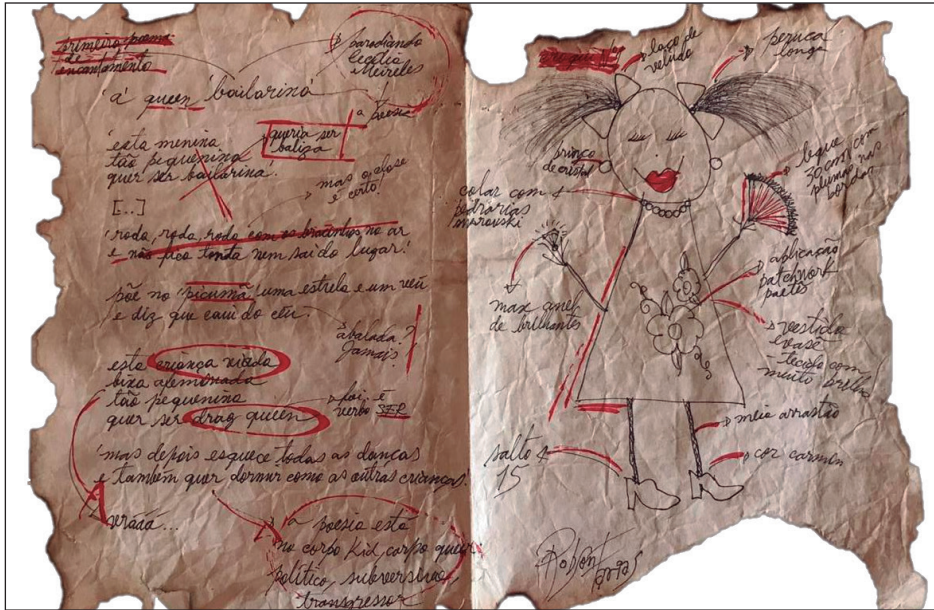 primeiro poema
de
encantamento
parodiando
Cecília
Meireles
'a' queen 'bailarina'
a poesia
'esta menina
tão pequenina
quer ser bailarina'.
queria ser
baliza
mas o close
é certo!
[...]
'roda, roda, roda com os bracinhos no ar
e não fica tonta nem sai do lugar.'
põe no 'picumã' uma estrela e um véu
e diz que caiu do céu.
abalada?
Jamais!
esta criança viada
bixa afeminada
tão pequenina
quer ser drag queen
foi, é
verbo SER
'mas depois esquece todas as danças
e também quer dormir como as outras crianças.'
vráaá...
a poesia está
no corpo kid, corpo queer
político, subversivo,
transgressor
laço de
veludo
peruca
longa
brinco
de cristal
colar com
pedrarias
swarovski
leque
30 cm com
plumas nas
bordas
max anel
de brilhantes
aplicação
patchwork
paetês
vestido
evasê
tecido com
muito brilho
meia arrastão
salto
15
cor carmim
Robson